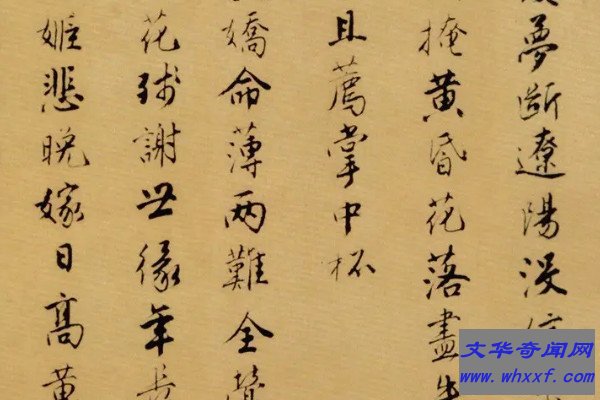 夢斷遼陽没信
掩黄昏花落盡
且薦掌中杯
嬌命薄两難全
花殘謝世緣年長
姬悲晚嫁日高黄
文华奇闻网
www.whxxf.com